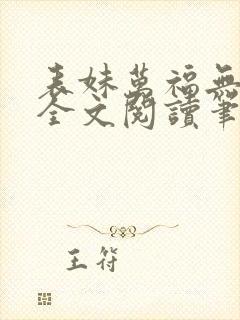 表妹萬福無
全文閱讀筆
王符